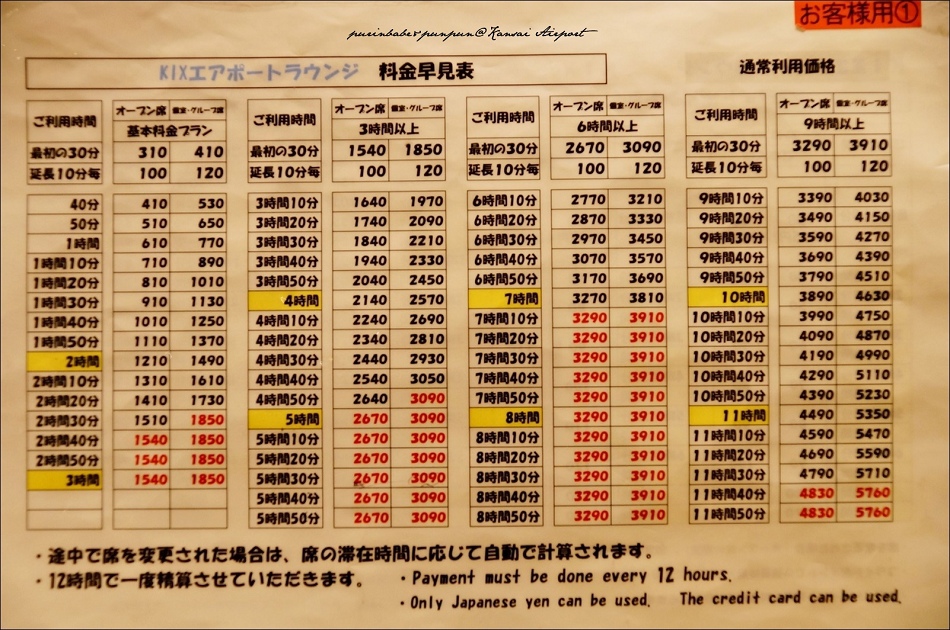 お客様用①
purinbabe&punpun@Kansai Airport
KIXエアポートラウンジ 料金早見表 通常利用価格
ご利用時間 オープン席 個室・グループ席 ご利用時間 オープン席 個室・グループ席 ご利用時間 オープン席 個室・グループ席 ご利用時間 オープン席 個室・グループ席
基本料金プラン 3時間以上 6時間以上 9時間以上
最初の30分 310 410 最初の30分 1540 1850 最初の30分 2670 3090 最初の30分 3290 3910
延長10分毎 100 120 延長10分毎 100 120 延長10分毎 100 120 延長10分毎 100 120
40分 410 530 3時間10分 1640 1970 6時間10分 2770 3210 9時間10分 3390 4030
50分 510 650 3時間20分 1740 2090 6時間20分 2870 3330 9時間20分 3490 4150
1時間 610 770 3時間30分 1840 2210 6時間30分 2970 3450 9時間30分 3590 4270
1時間10分 710 890 3時間40分 1940 2330 6時間40分 3070 3570 9時間40分 3690 4390
1時間20分 810 1010 3時間50分 2040 2450 6時間50分 3170 3690 9時間50分 3790 4510
1時間30分 910 1130 4時間 2140 2570 7時間 3270 3810 10時間 3890 4630
1時間40分 1010 1250 4時間10分 2240 2690 7時間10分 3290 3910 10時間10分 3990 4750
1時間50分 1110 1370 4時間20分 2340 2810 7時間20分 3290 3910 10時間20分 4090 4870
2時間 1210 1490 4時間30分 2440 2930 7時間30分 3290 3910 10時間30分 4190 4990
2時間10分 1310 1610 4時間40分 2540 3050 7時間40分 3290 3910 10時間40分 4290 5110
2時間20分 1410 1730 4時間50分 2640 3090 7時間50分 3290 3910 10時間50分 4390 5230
2時間30分 1510 1850 5時間 2670 3090 8時間 3290 3910 11時間 4490 5350
2時間40分 1540 1850 5時間10分 2670 3090 8時間10分 3290 3910 11時間10分 4590 5470
2時間50分 1540 1850 5時間20分 2670 3090 8時間20分 3290 3910 11時間20分 4690 5590
3時間 1540 1850 5時間30分 2670 3090 8時間30分 3290 3910 11時間30分 4790 5710
5時間40分 2670 3090 8時間40分 3290 3910 11時間40分 4830 5760
5時間50分 2670 3090 8時間50分 3290 3910 11時間50分 4830 5760
・途中で席を変更された場合は、席の滞在時間に応じて自動で計算されます。
・12時間で一度精算させていただきます。 ・Payment must be done every 12 hours.
・Only Japanese yen can be used. The credit card can be used.